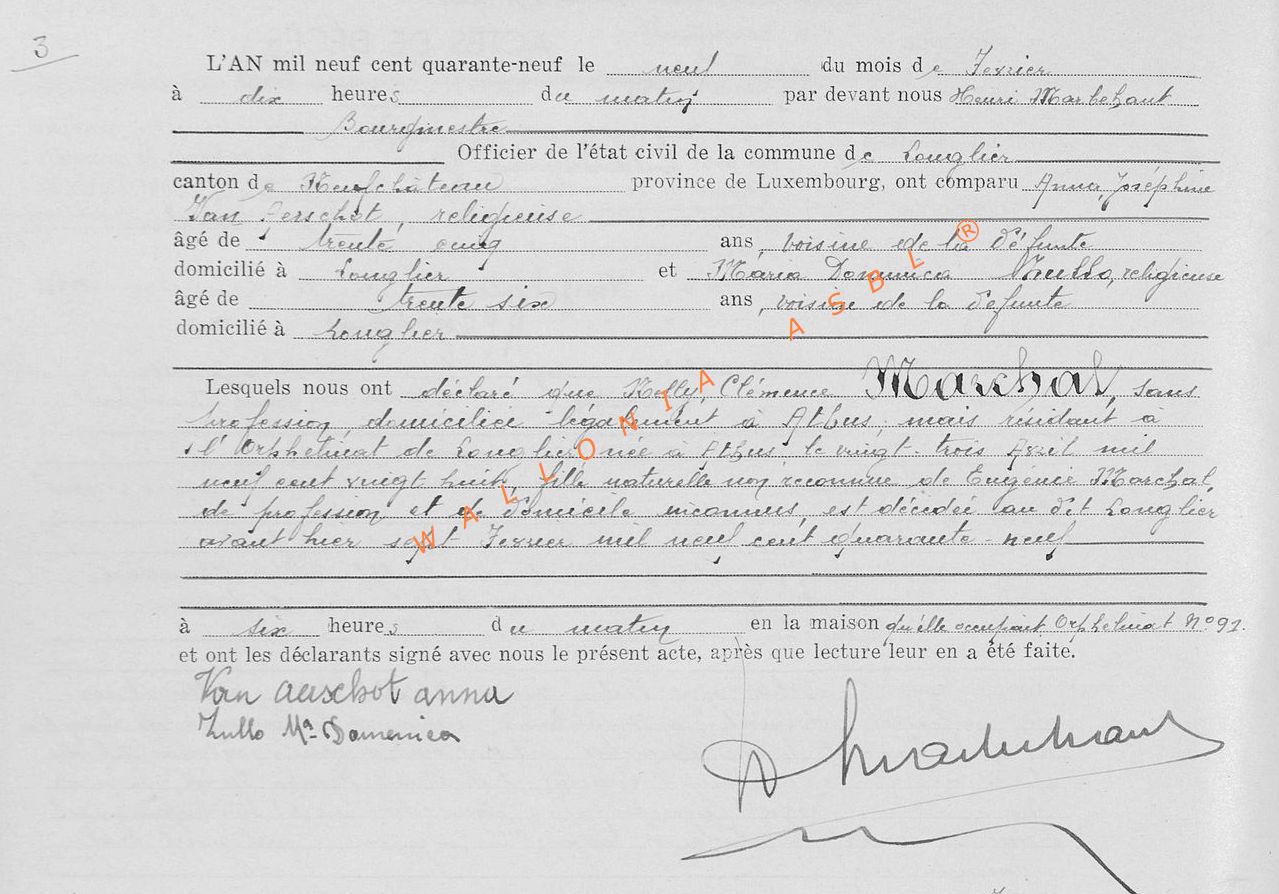 3
L'AN mil neuf cent quarante-neuf le neuf du mois de Fevrier
à dix heures du matin par devant nous Henri Marbehant
Bourgmestre
Officier de l'état civil de la commune de Longlier
canton de Neufchâteau province de Luxembourg, ont comparu Anna, Joséphine
Van Aerschot, religieuse
âgé de trente cinq ans, voisine de la défunte
domicilié à Longlier et Maria Domenica Zullo, religieuse
âgé de trente six ans, voisine de la défunte
domicilié à Longlier
Lesquels nous ont déclaré que Nelly, Clémence Marchal, sans
profession, domiciliée légalement à Athus, mais résidant à
l'Orphelinat de Longlier née à Athus le vingt-trois Avril mil
neuf cent vingt huit, fille naturelle non reconnue de Eugénie Marchal,
de profession et de domicile inconnus, est décédée au dit Longlier
avant hier sept Fevrier mil neuf cent quarante-neuf
à six heures du matin en la maison qu'elle occupait Orphelinat N°92.
et ont les déclarants signé avec nous le présent acte, après que lecture leur en a été faite.
Van aerschot anna
Zullo Mª Domenica
WALLONIA ASBL ®